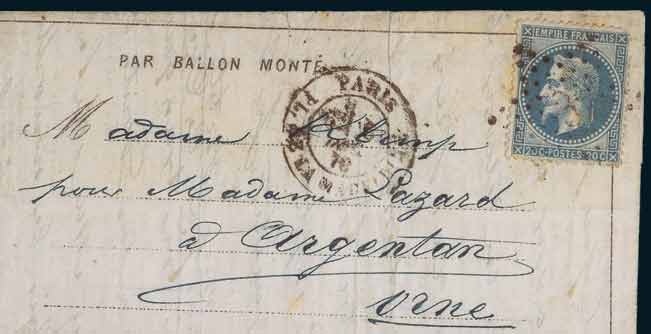 EMPIRE FRANÇAIS
20C POSTES 20C
PAR BALLON MONTÉ
PARIS
PL. DE LA MADELEINE
70
Madame
pour Madame Lazard
à Argentan
Orne